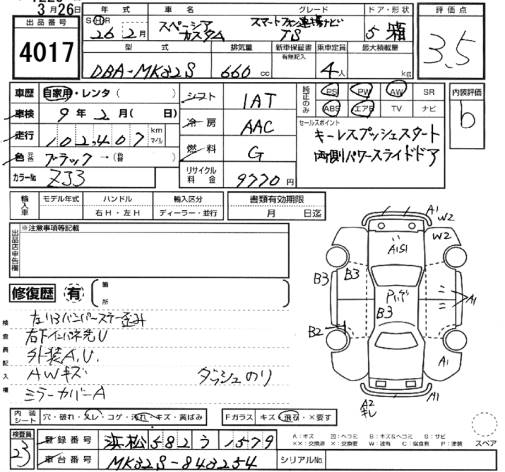 3月26日
出品番号
4017
年式 車名 グレード ドア・形状
26年2月 スペーシア カスタム TS 5 箱
型式 排気量 新車保証書 有無記入 乗車定員 最大積載量
DBA-MK32S 660 cc 4人 kg
評価点
3.5
車歴 自家用・レンタ( )
車検 9年2月( 日)
走行 102,407 km マイル
色 ブラック→(
カラーNo. ZJ3
シフト 1AT
冷房 AAC
燃料 G
リサイクル料金 9770円
純正のみ PS PW AW SR
ABS エアB TV ナビ
内装評価
b
セールスポイント
キーレスプッシュスタート
両側パワースライドドア
輸入車 モデル年式 ハンドル 輸入区分 書類有効期限
右H・左H ディーラー・並行 月 日迄
※注意事項等記載
修復歴 有 箇所
検査員記入欄
外装A,U.
AWキズ
ミラーカバーA
ダッシュのり
A1
W2
W2
A1S1
B3
B3
B3
A1
B2
A1
A2
内装シート 穴・破れ・スレ・コゲ・汚れ・キズ・黄ばみ
Fガラス キズ・飛石・×要す
スペア
検査員
23
登録番号 浜松 582 う 1579
車台番号 MK32S-840254 シリアルNo.
A:キズ U:ヘコミ B:キズ&ヘコミ S:サビ